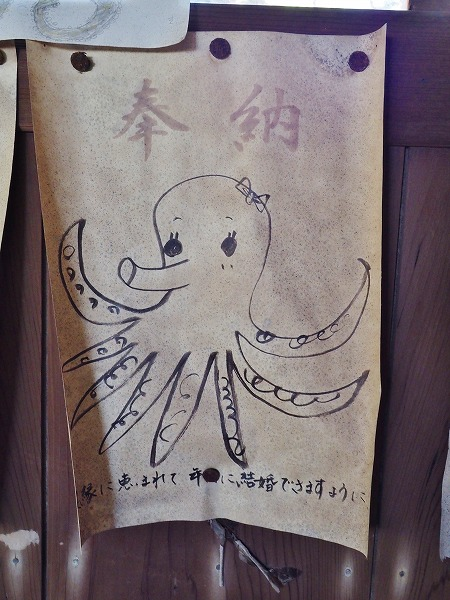 奉納
縁に恵まれて 年 に結婚できますように